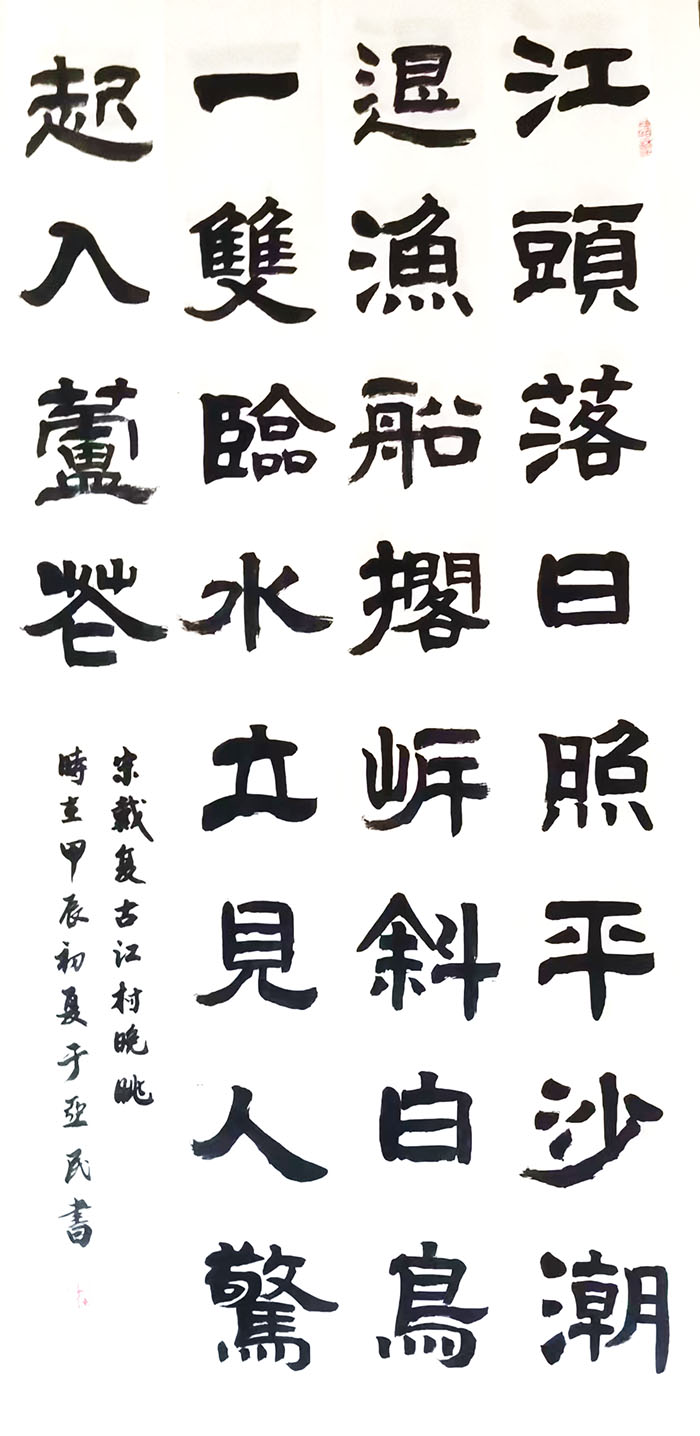 江頭落日照平沙潮
退漁船擱岸斜白鳥
一雙臨水立見人驚
起入蘆花
宋戴复古江村晚眺
時在甲辰初夏于亞民書